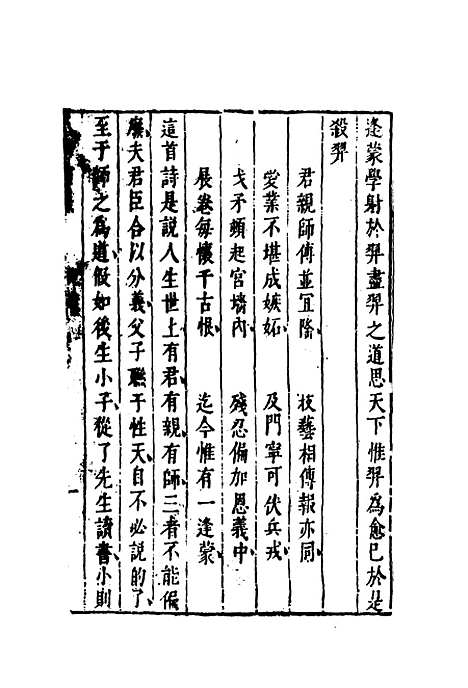 逢蒙學射於羿盡羿之道思天下惟羿為愈已於是
殺羿
君親師傅並宜隆　技藝相傳報亦同
受業不堪成嫉妬　及門寧可伏兵戎
戈矛頓起宮墻內　殘忍偏加恩義中
展卷每懷千古恨　迄今惟有一逢蒙
這首詩是說人生世上有君有親有師三者不能偏
廢夫君臣合以分義父子聯于性天自不必說的了
至于師之為道假如後生小子從了先生讀書小則